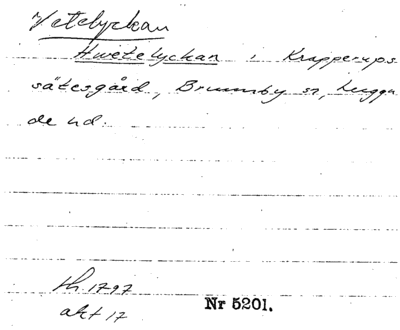 Vetelyckan
Hwetelyckan i Krapperups
sätesgård, Brunnby sn, Luggu
de hd.
th. 1797
akt 17
Nr 5201.